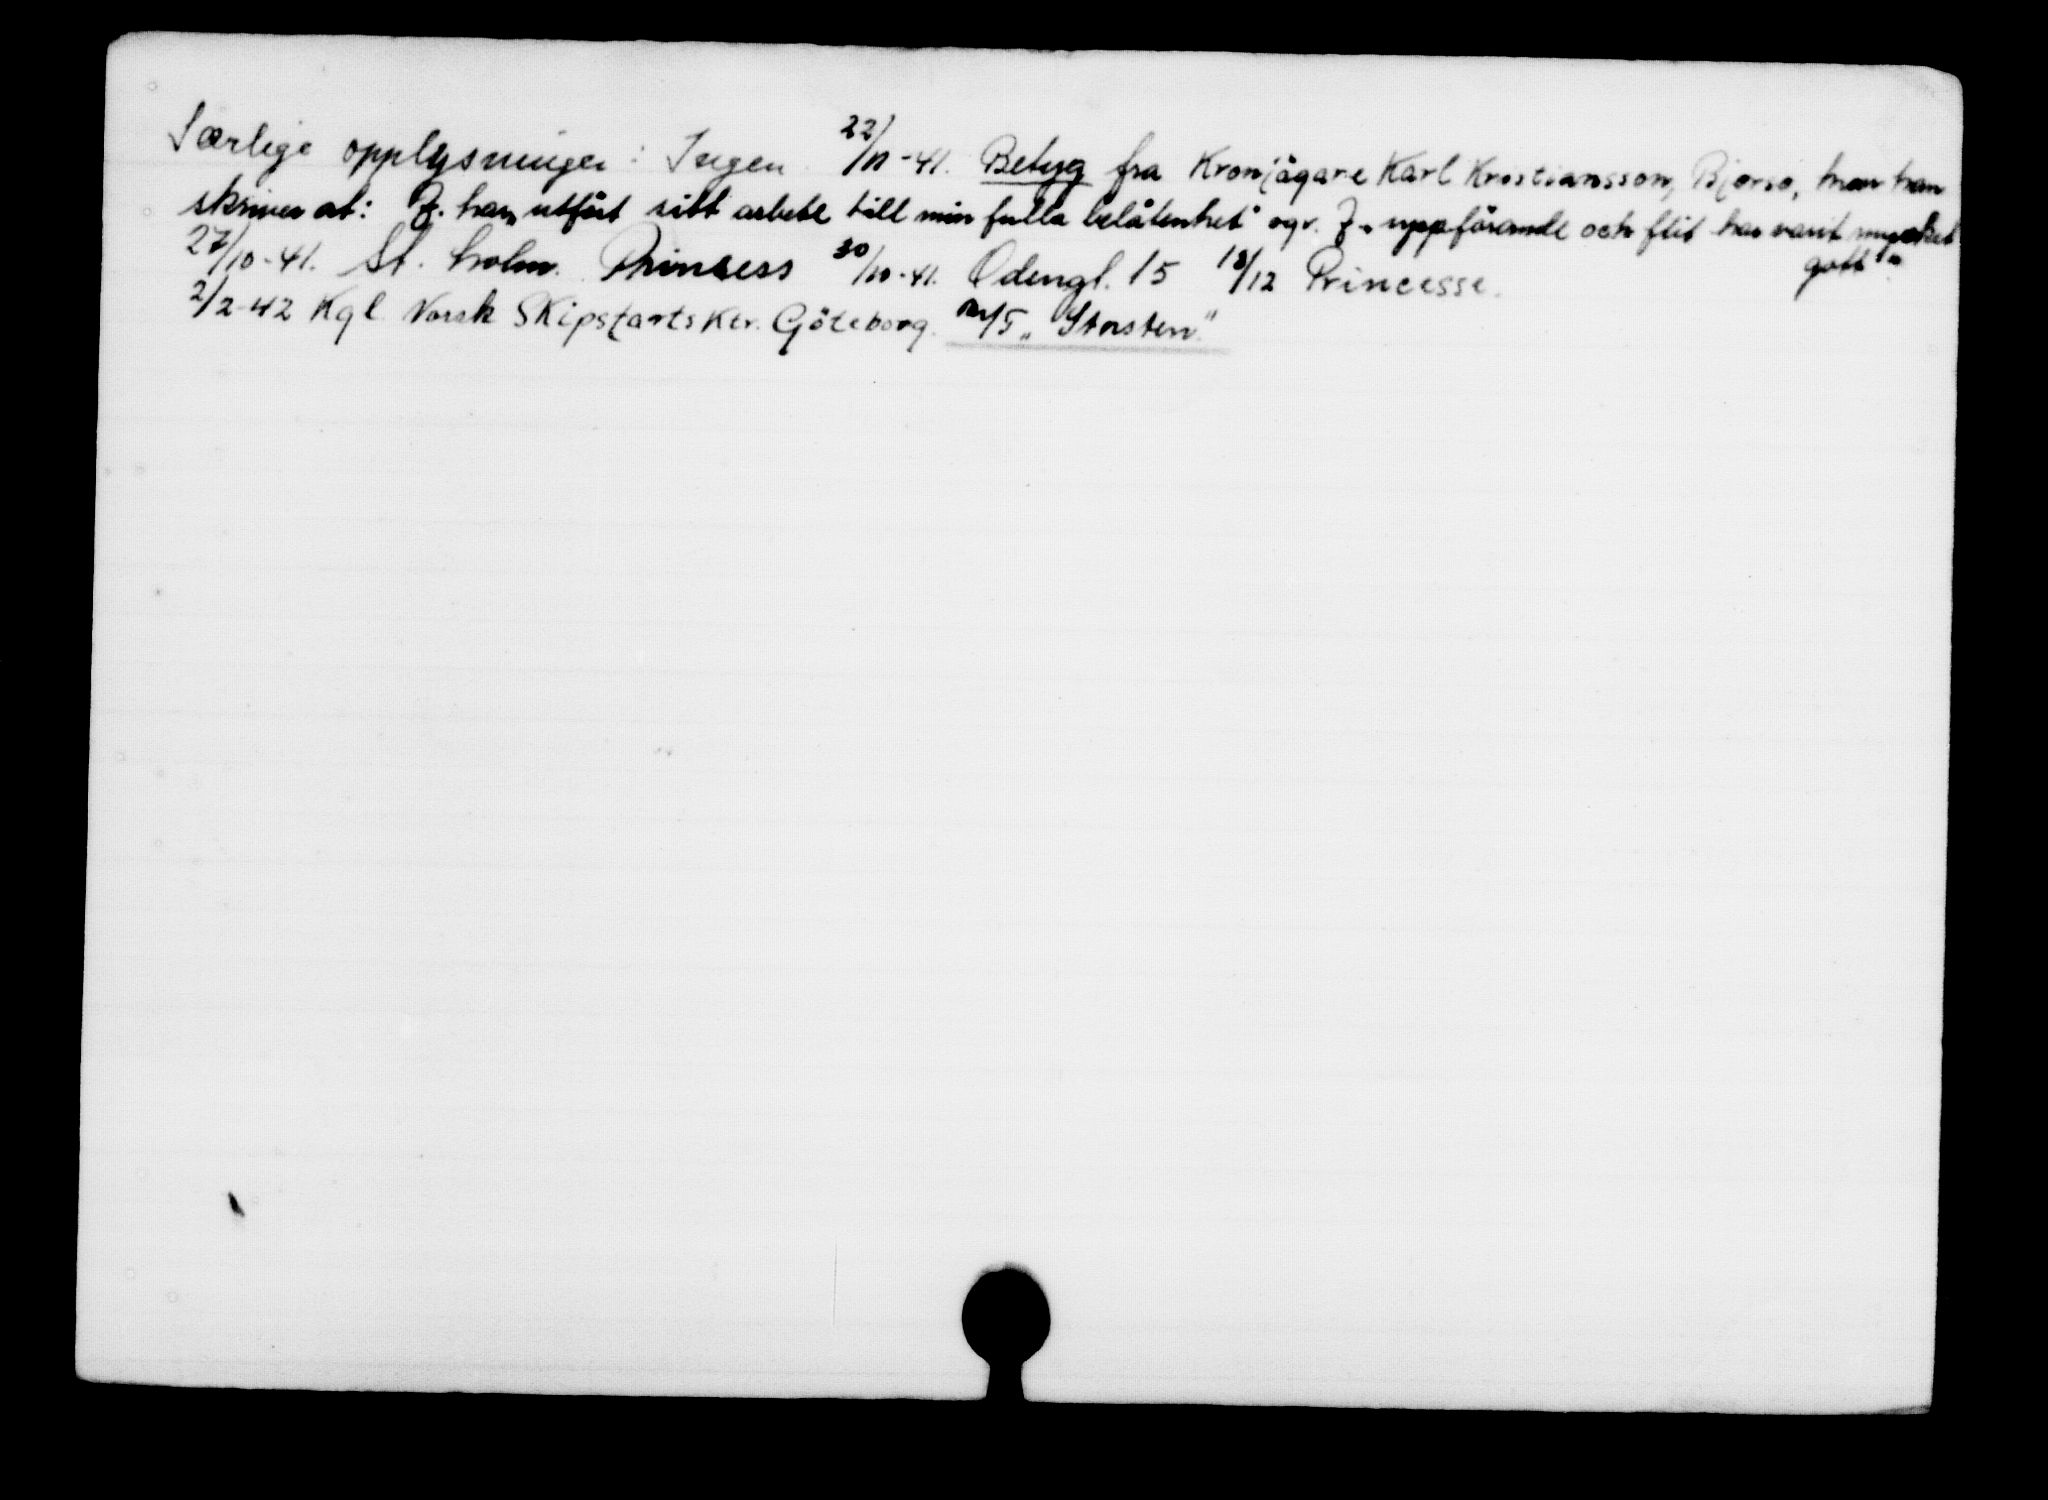 Særlige opplysninger: Ingen 22/11-41. Betyg fra Kronjägare Karl Kristiansson, Bjorso, hvor han
skriver at: J. har „utført sitt arbete till min fulla belåtenhet" ogv. J. „uppförande och flit har varit mycket
gott".
27/10-41. St.holm. Prinsess 30/10-41. Odengt. 15 18/12 Princesse.
2/2-42 Kgl. Norsk Skipsfartsktr. Göteborg. M/T „Storsten".